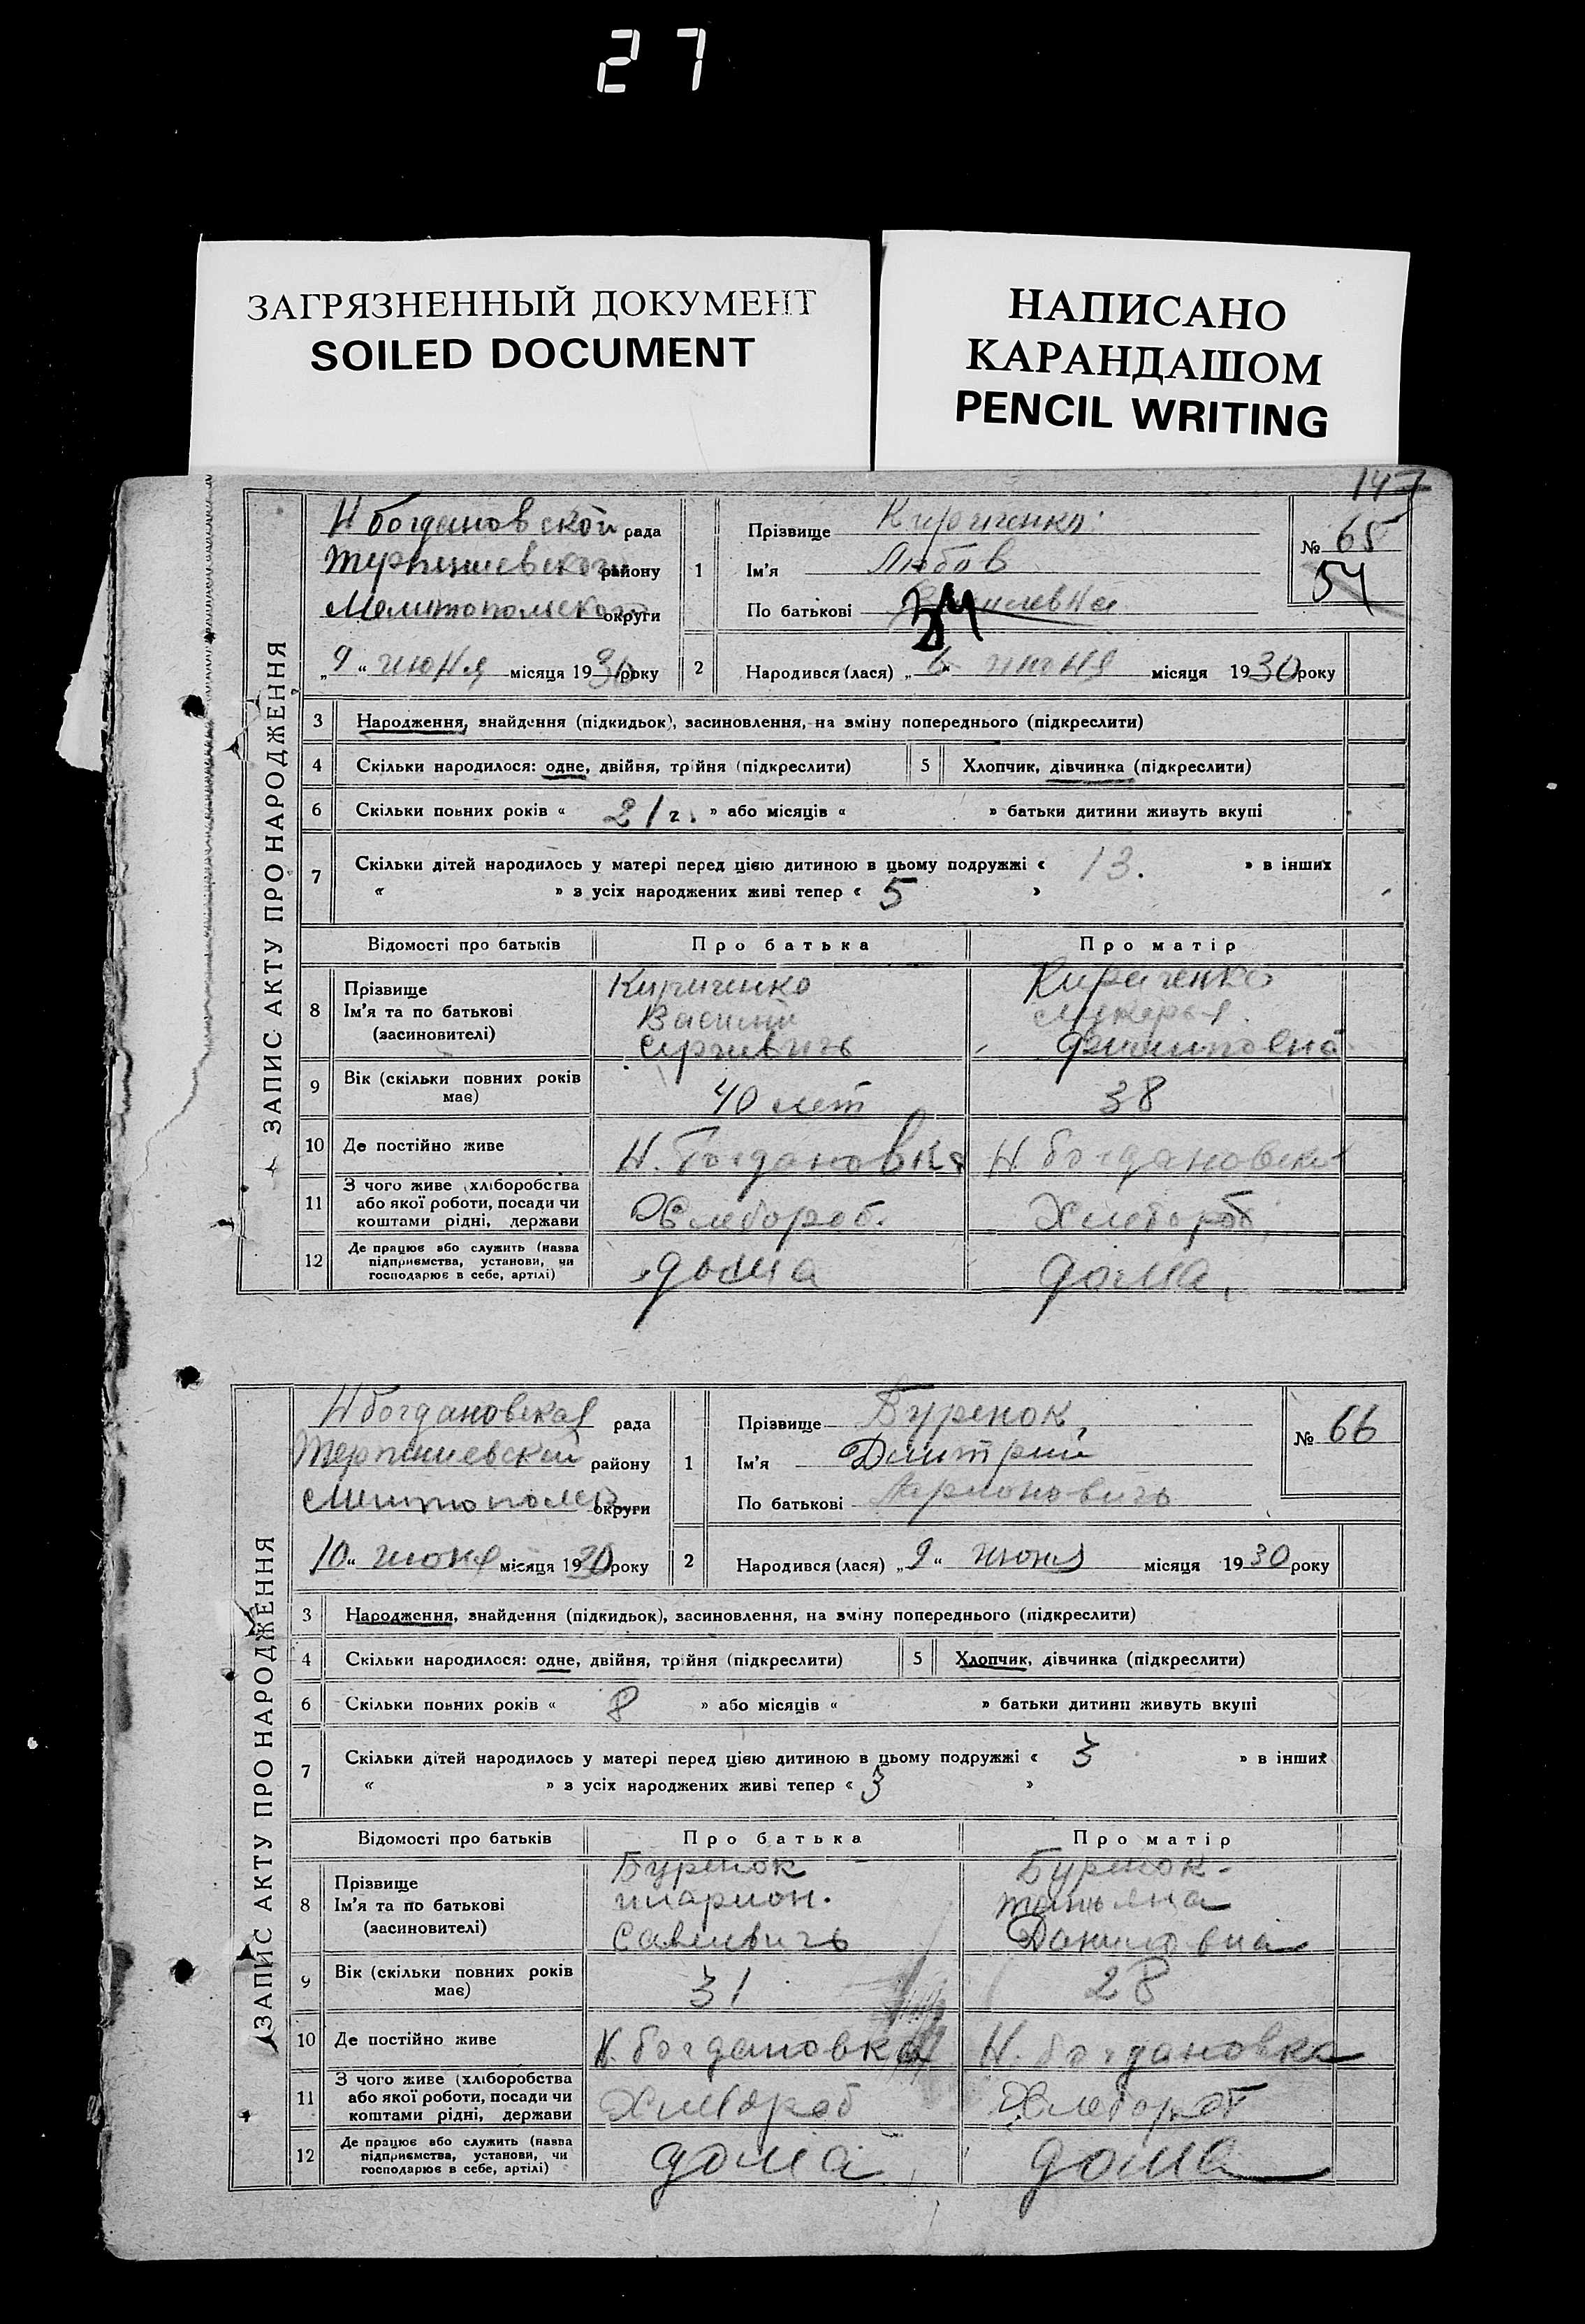 27
ЗАГРЯЗНЕННЫЙ ДОКУМЕНТ
SOILED DOCUMENT
НАПИСАНО
КАРАНДАШОМ
PENCIL WRITING
147
ЗАПИС АКТУ ПРО НАРОДЖЕННЯ
Н богдановской рада
району
округи
„9" июня місяця 1930 року
1 Прізвище Кириченко
Ім'я Любов
По батькові
34
№ 65
54
2 Народився (лася) „6" июня місяця 1930 року
3 Народження, знайдення (підкидьок), засиновлення, на зміну попереднього (підкреслити)
4 Скільки народилося: одне, двійня, трійня (підкреслити) 5 Хлопчик, дівчинка (підкреслити)
6 Скільки повних років « 21 г. » або місяців « » батьки дитини живуть вкупі
7 Скільки дітей народилось у матері перед цією дитиною в цьому подружжі « 13. » в інших
« » з усіх народжених живі тепер « 5 »
Відомості про батьків Про батька Про матір
8 Прізвище Кириченко Кириченко
Ім'я та по батькові Василий
(засиновителі) Филиповна
9 Вік (скільки повних років має) 40 лет 38
10 Де постійно живе Н. Богдановка Н. богдановка
11 З чого живе (хліборобства або якої роботи, посади чи коштами рідні, держави Хлебороб. Хлебороб
12 Де працює або служить (назва підприємства, установи, чи господарює в себе, артілі) дома дома
ЗАПИС АКТУ ПРО НАРОДЖЕННЯ
Н богдановская рада
району
округи
10" июня місяця 1930 року
1 Прізвище Буренок
Ім'я Дмитрий
По батькові
№ 66
2 Народився (лася) „9" июня місяця 1930 року
3 Народження, знайдення (підкидьок), засиновлення, на зміну попереднього (підкреслити)
4 Скільки народилося: одне, двійня, трійня (підкреслити) 5 Хлопчик, дівчинка (підкреслити)
6 Скільки повних років « 8 » або місяців « » батьки дитини живуть вкупі
7 Скільки дітей народилось у матері перед цією дитиною в цьому подружжі « 3 » в інших
« » з усіх народжених живі тепер « 3 »
Відомості про батьків Про батька Про матір
8 Прізвище Буренок Буренок
Ім'я та по батькові иларион. татьяна
(засиновителі) Савельвичь Даниловна
9 Вік (скільки повних років має) 31 28
10 Де постійно живе Н. богдановка Н. богдановка
11 З чого живе (хліборобства або якої роботи, посади чи коштами рідні, держави Хлебороб Хлебороб
12 Де працює або служить (назва підприємства, установи, чи господарює в себе, артілі) дома дома